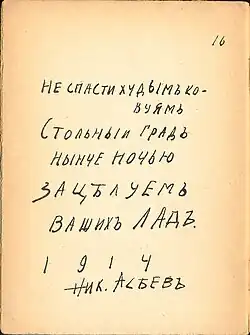 16
НЕ СПАСТИ ХУДЫМЪ КО-
ВУЯМЪ
СТОЛЬНЫИ ГРАДЪ
НЫНЧЕ НОЧЬЮ
ЗАЦѢЛУЕМЪ
ВАШИХЪ ЛАДЪ.
1914
НИК. АСѢЕВЪ